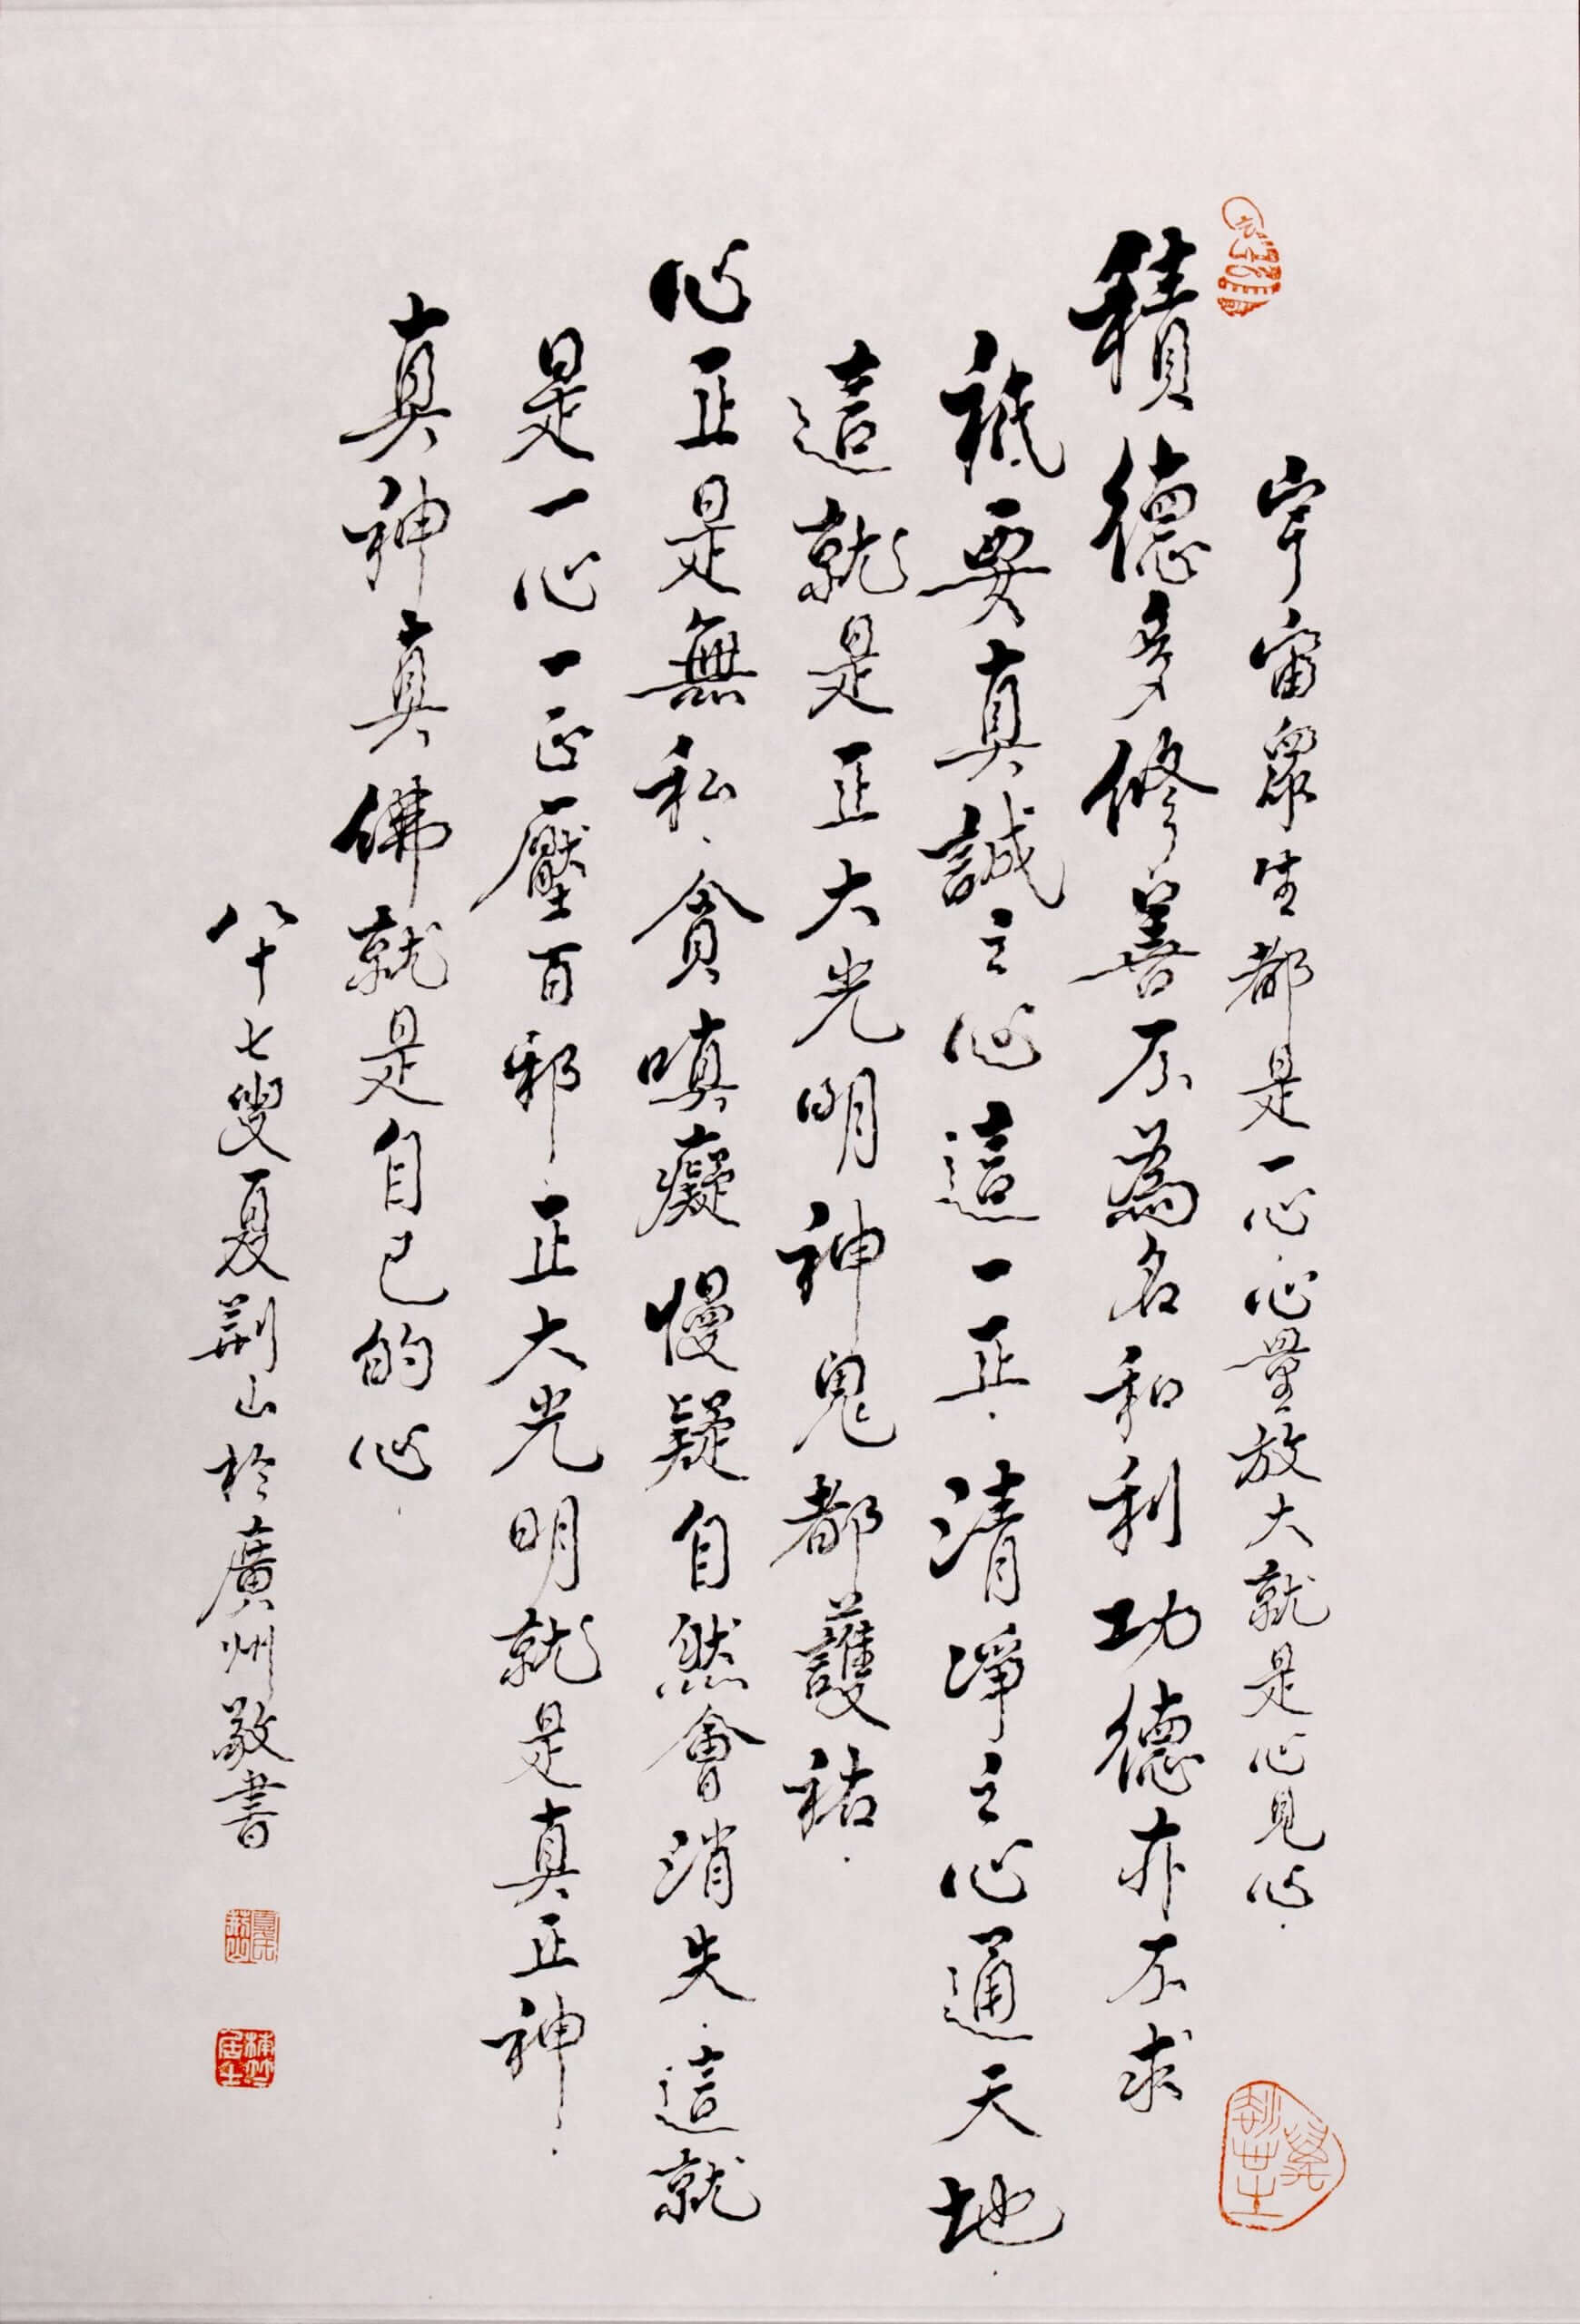 宇宙眾生都是一心心量放大就是心見心
積德多修善不為名和利功德亦不求
祇要真誠之心這一正清淨之心通天地
這就是正大光明神鬼都護祐
心正是無私貪嗔癡慢疑自然會消失這就
是一心一正壓百邪正大光明就是真正神
真神真佛就是自己的心
八十七叟夏荆山於廣州敬書
楠竹居士